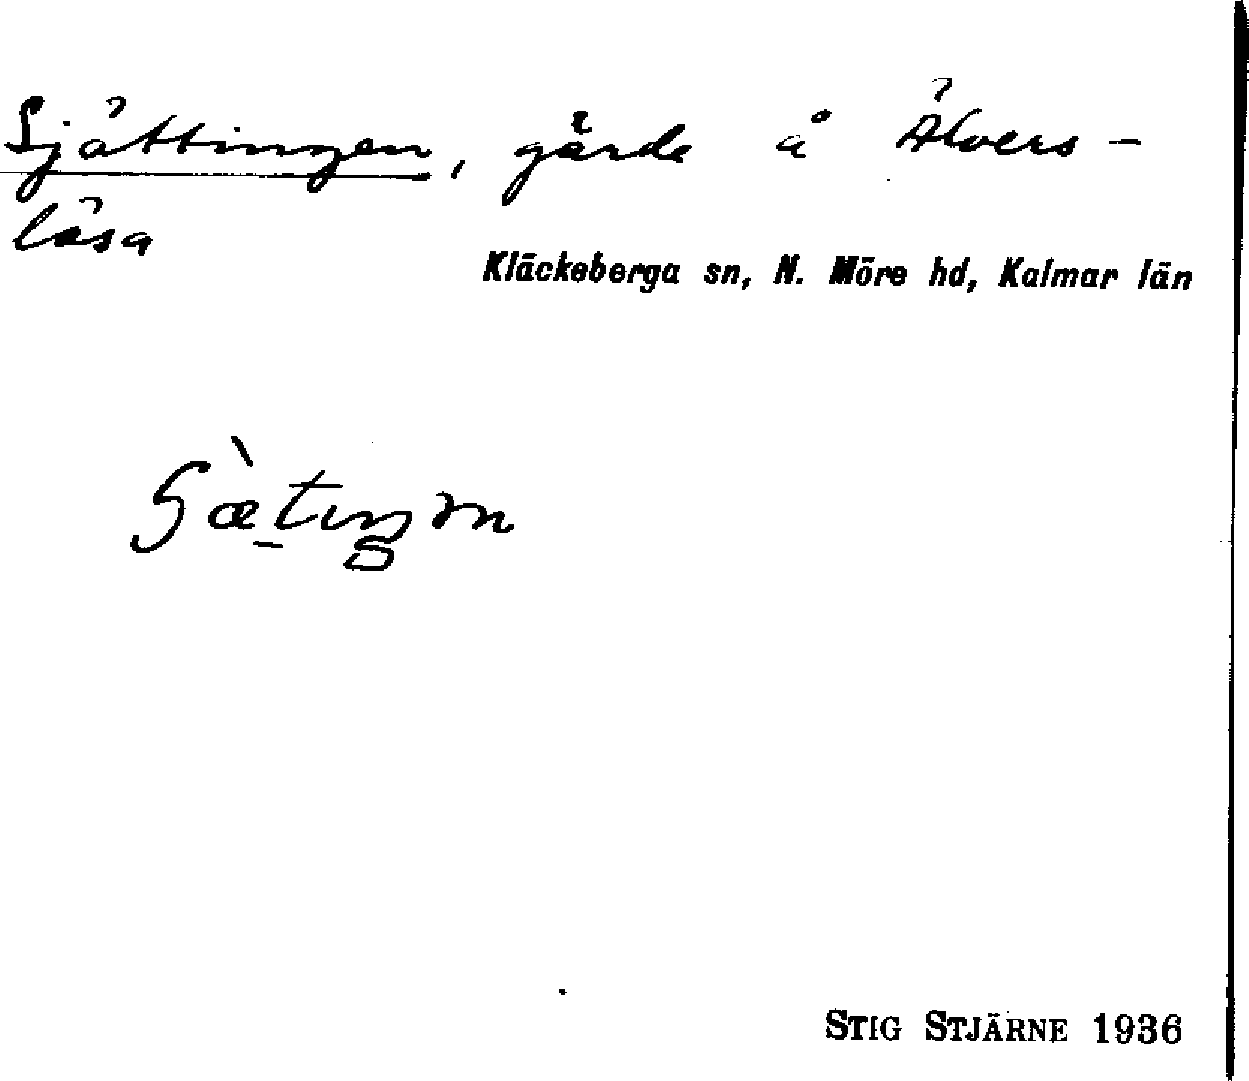 Sjättingen, gärde å Älvers-
läsa
Kläckeberga sn, N. Möre hd, Kalmar län
STIG STJÄRNE 1936